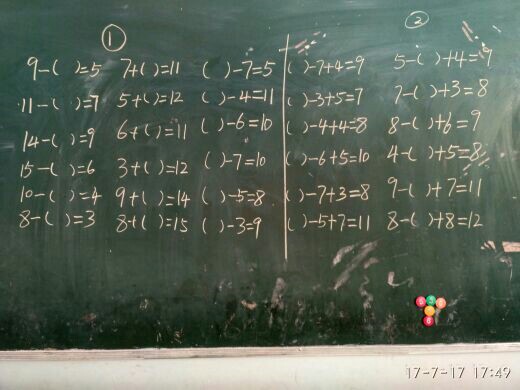 ① ②
9-( )=5 7+( )=11 ( )-7=5 ( )-7+4=9 5-( )+4=9
11-( )=7 5+( )=12 ( )-4=11 ( )-3+5=7 7-( )+3=8
14-( )=9 6+( )=11 ( )-6=10 ( )-4+4=8 8-( )+6=9
15-( )=6 3+( )=12 ( )-7=10 ( )-6+5=10 4-( )+5=8
10-( )=4 9+( )=14 ( )-5=8 ( )-7+3=8 9-( )+7=11
8-( )=3 8+( )=15 ( )-3=9 ( )-5+7=11 8-( )+8=12
17-7-17 17:49